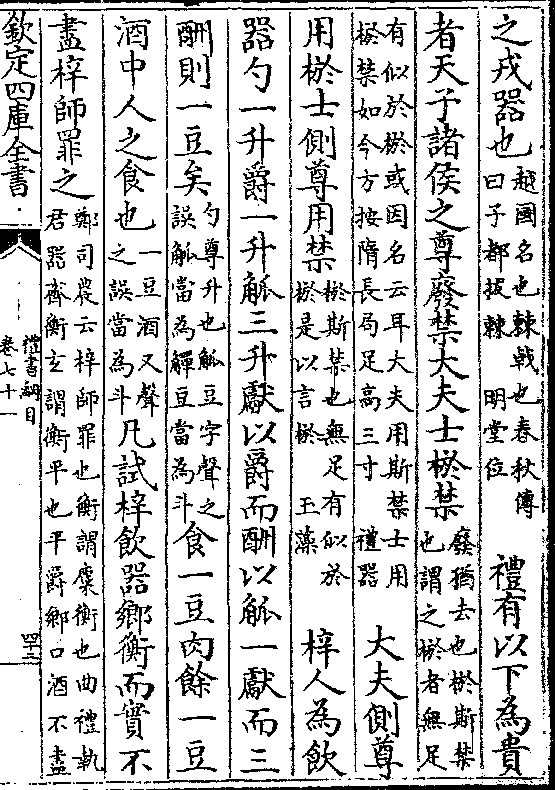 之戎器也越國名也棘戟也春秋傳
曰子都拔棘　明堂位　禮有以下為貴
者天子諸侯之尊廢禁大夫士棜禁廢猶去也棜斯禁
也謂之棜者無足
有似於棜或因名云耳大夫用斯禁士用
棜禁如今方按隋長局足高三寸　禮器　大夫側尊
用棜士側尊用禁棜斯禁也無足有似於
棜是以言棜　玉藻　梓人為飲
器勺一升爵一升觚三升獻以爵而酬以觚一獻而三
酬則一豆矣勺尊升也觚豆字聲之
誤觚當為觶豆當為斗食一豆肉餘一豆
酒中人之食也一豆酒又聲
之誤當為斗凡試梓飲器鄉衡而實不
盡梓師罪之鄭司農云梓師罪也衡謂麋衡也曲禮執
君器齊衡玄謂衡平也平爵鄉口酒不盡
欽定四庫全書
禮書綱目
卷七十一
四十三